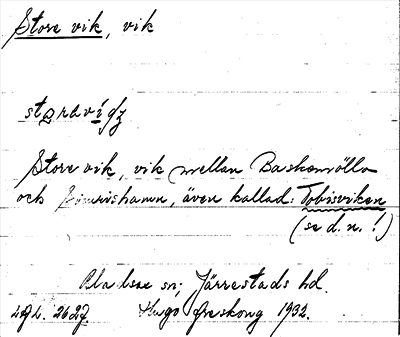 Store vik, vik
Store vik, vik mellan Baskemölla
och Simrishamn, även kallad: Tobisviken
(se d. n.!)
sn; Järrestads hd.
Hugo Areskoug 1932.